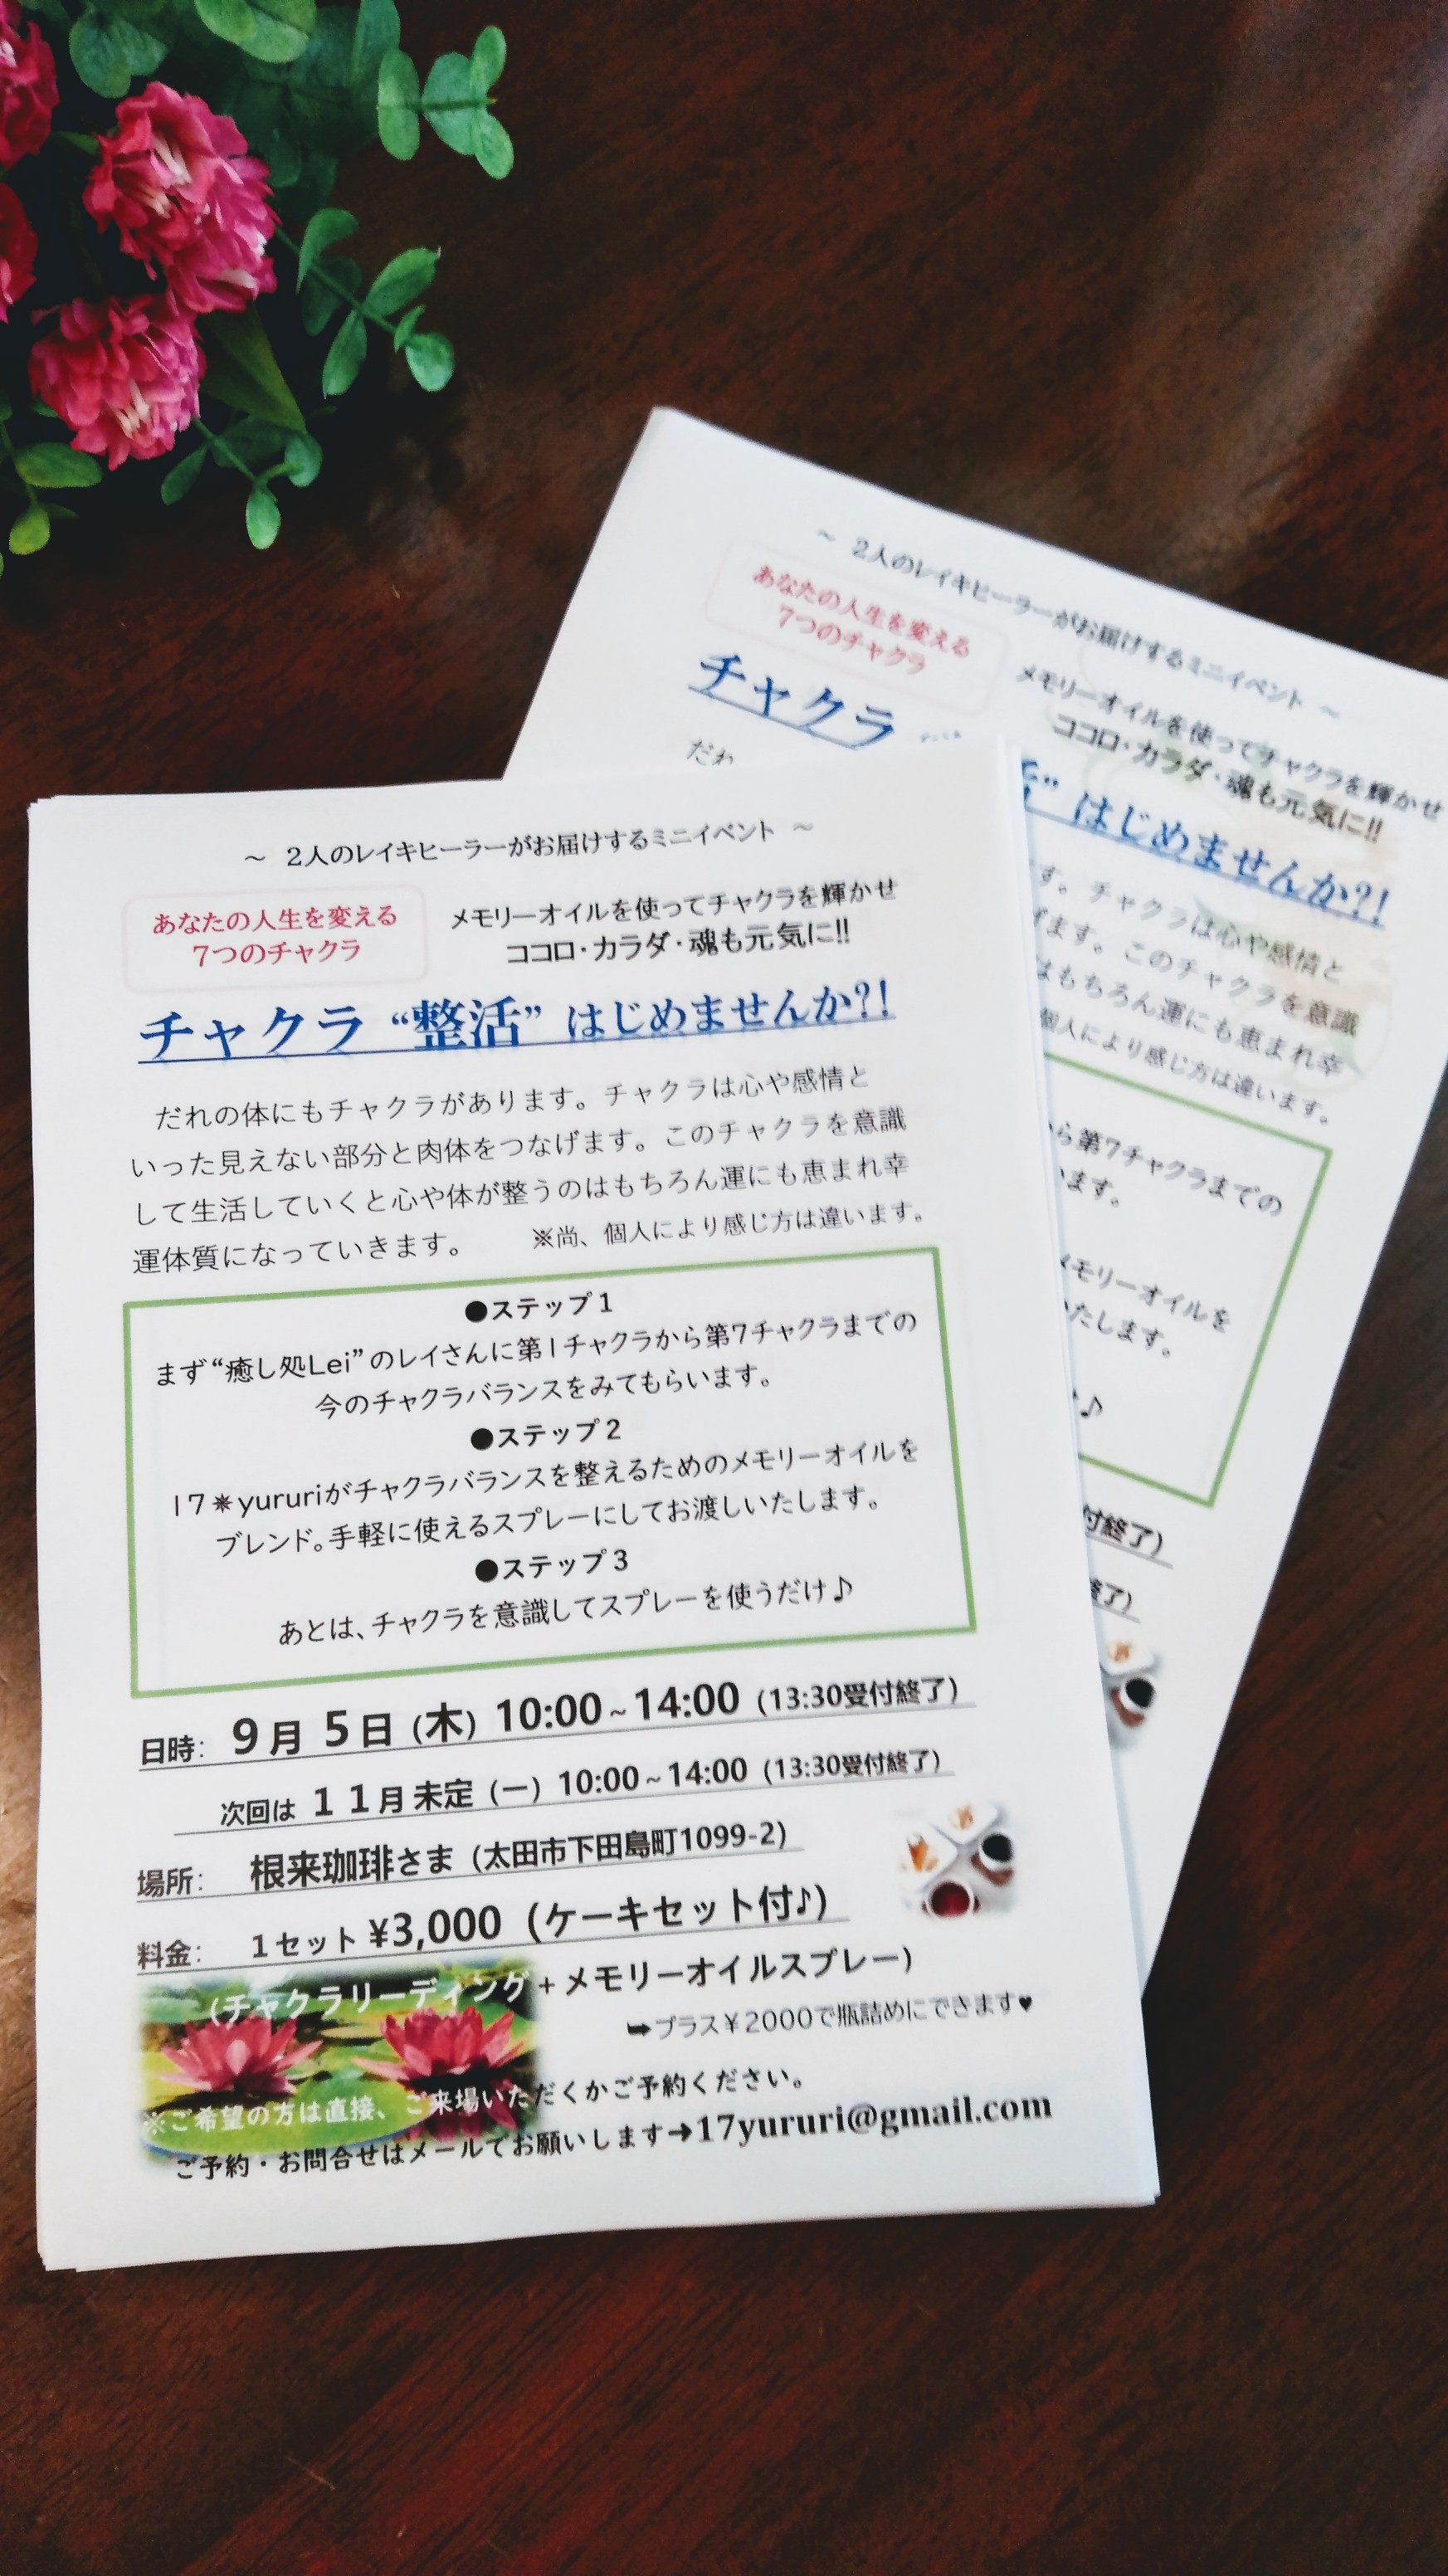 ～ 2人のレイキヒーラーがお届けするミニイベント ～
あなたの人生を変える
7つのチャクラ
メモリーオイルを使ってチャクラを輝かせ
ココロ・カラダ・魂も元気に!!
チャクラ
だれ
“ はじめませんか?!
す。チャクラは心や感情と
げます。このチャクラを意識
はもちろん運にも恵まれ幸
個人により感じ方は違います。
から第7チャクラまでの
います。
メモリーオイルを
いたします。
♪
付終了)
終了)
～ 2人のレイキヒーラーがお届けするミニイベント ～
あなたの人生を変える
7つのチャクラ
メモリーオイルを使ってチャクラを輝かせ
ココロ・カラダ・魂も元気に!!
チャクラ “整活” はじめませんか?!
だれの体にもチャクラがあります。チャクラは心や感情と
いった見えない部分と肉体をつなげます。このチャクラを意識
して生活していくと心や体が整うのはもちろん運にも恵まれ幸
運体質になっていきます。 ※尚、個人により感じ方は違います。
●ステップ1
まず“癒し処Lei”のレイさんに第1チャクラから第7チャクラまでの
今のチャクラバランスをみてもらいます。
●ステップ2
17✷yururiがチャクラバランスを整えるためのメモリーオイルを
ブレンド。手軽に使えるスプレーにしてお渡しいたします。
●ステップ3
あとは、チャクラを意識してスプレーを使うだけ♪
日時: 9月 5日 (木) 10:00~14:00 (13:30受付終了)
次回は 11月 未定 (ー) 10:00~14:00 (13:30受付終了)
場所: 根来珈琲さま (太田市下田島町1099-2)
料金: 1セット ¥3,000 (ケーキセット付♪)
(チャクラリーディング+メモリーオイルスプレー)
➥プラス¥2000で瓶詰めにできます♥
※ご希望の方は直接、ご来場いただくかご予約ください。
ご予約・お問合せはメールでお願いします➜17yururi@gmail.com